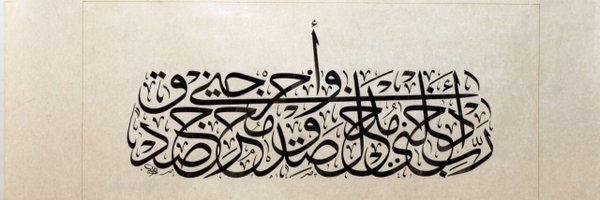 رَبِّ أَدْخِلْنِي مُدْخَلَ صِدْقٍ وَأَخْرِجْنِي مُخْرَجَ صِدْقٍ